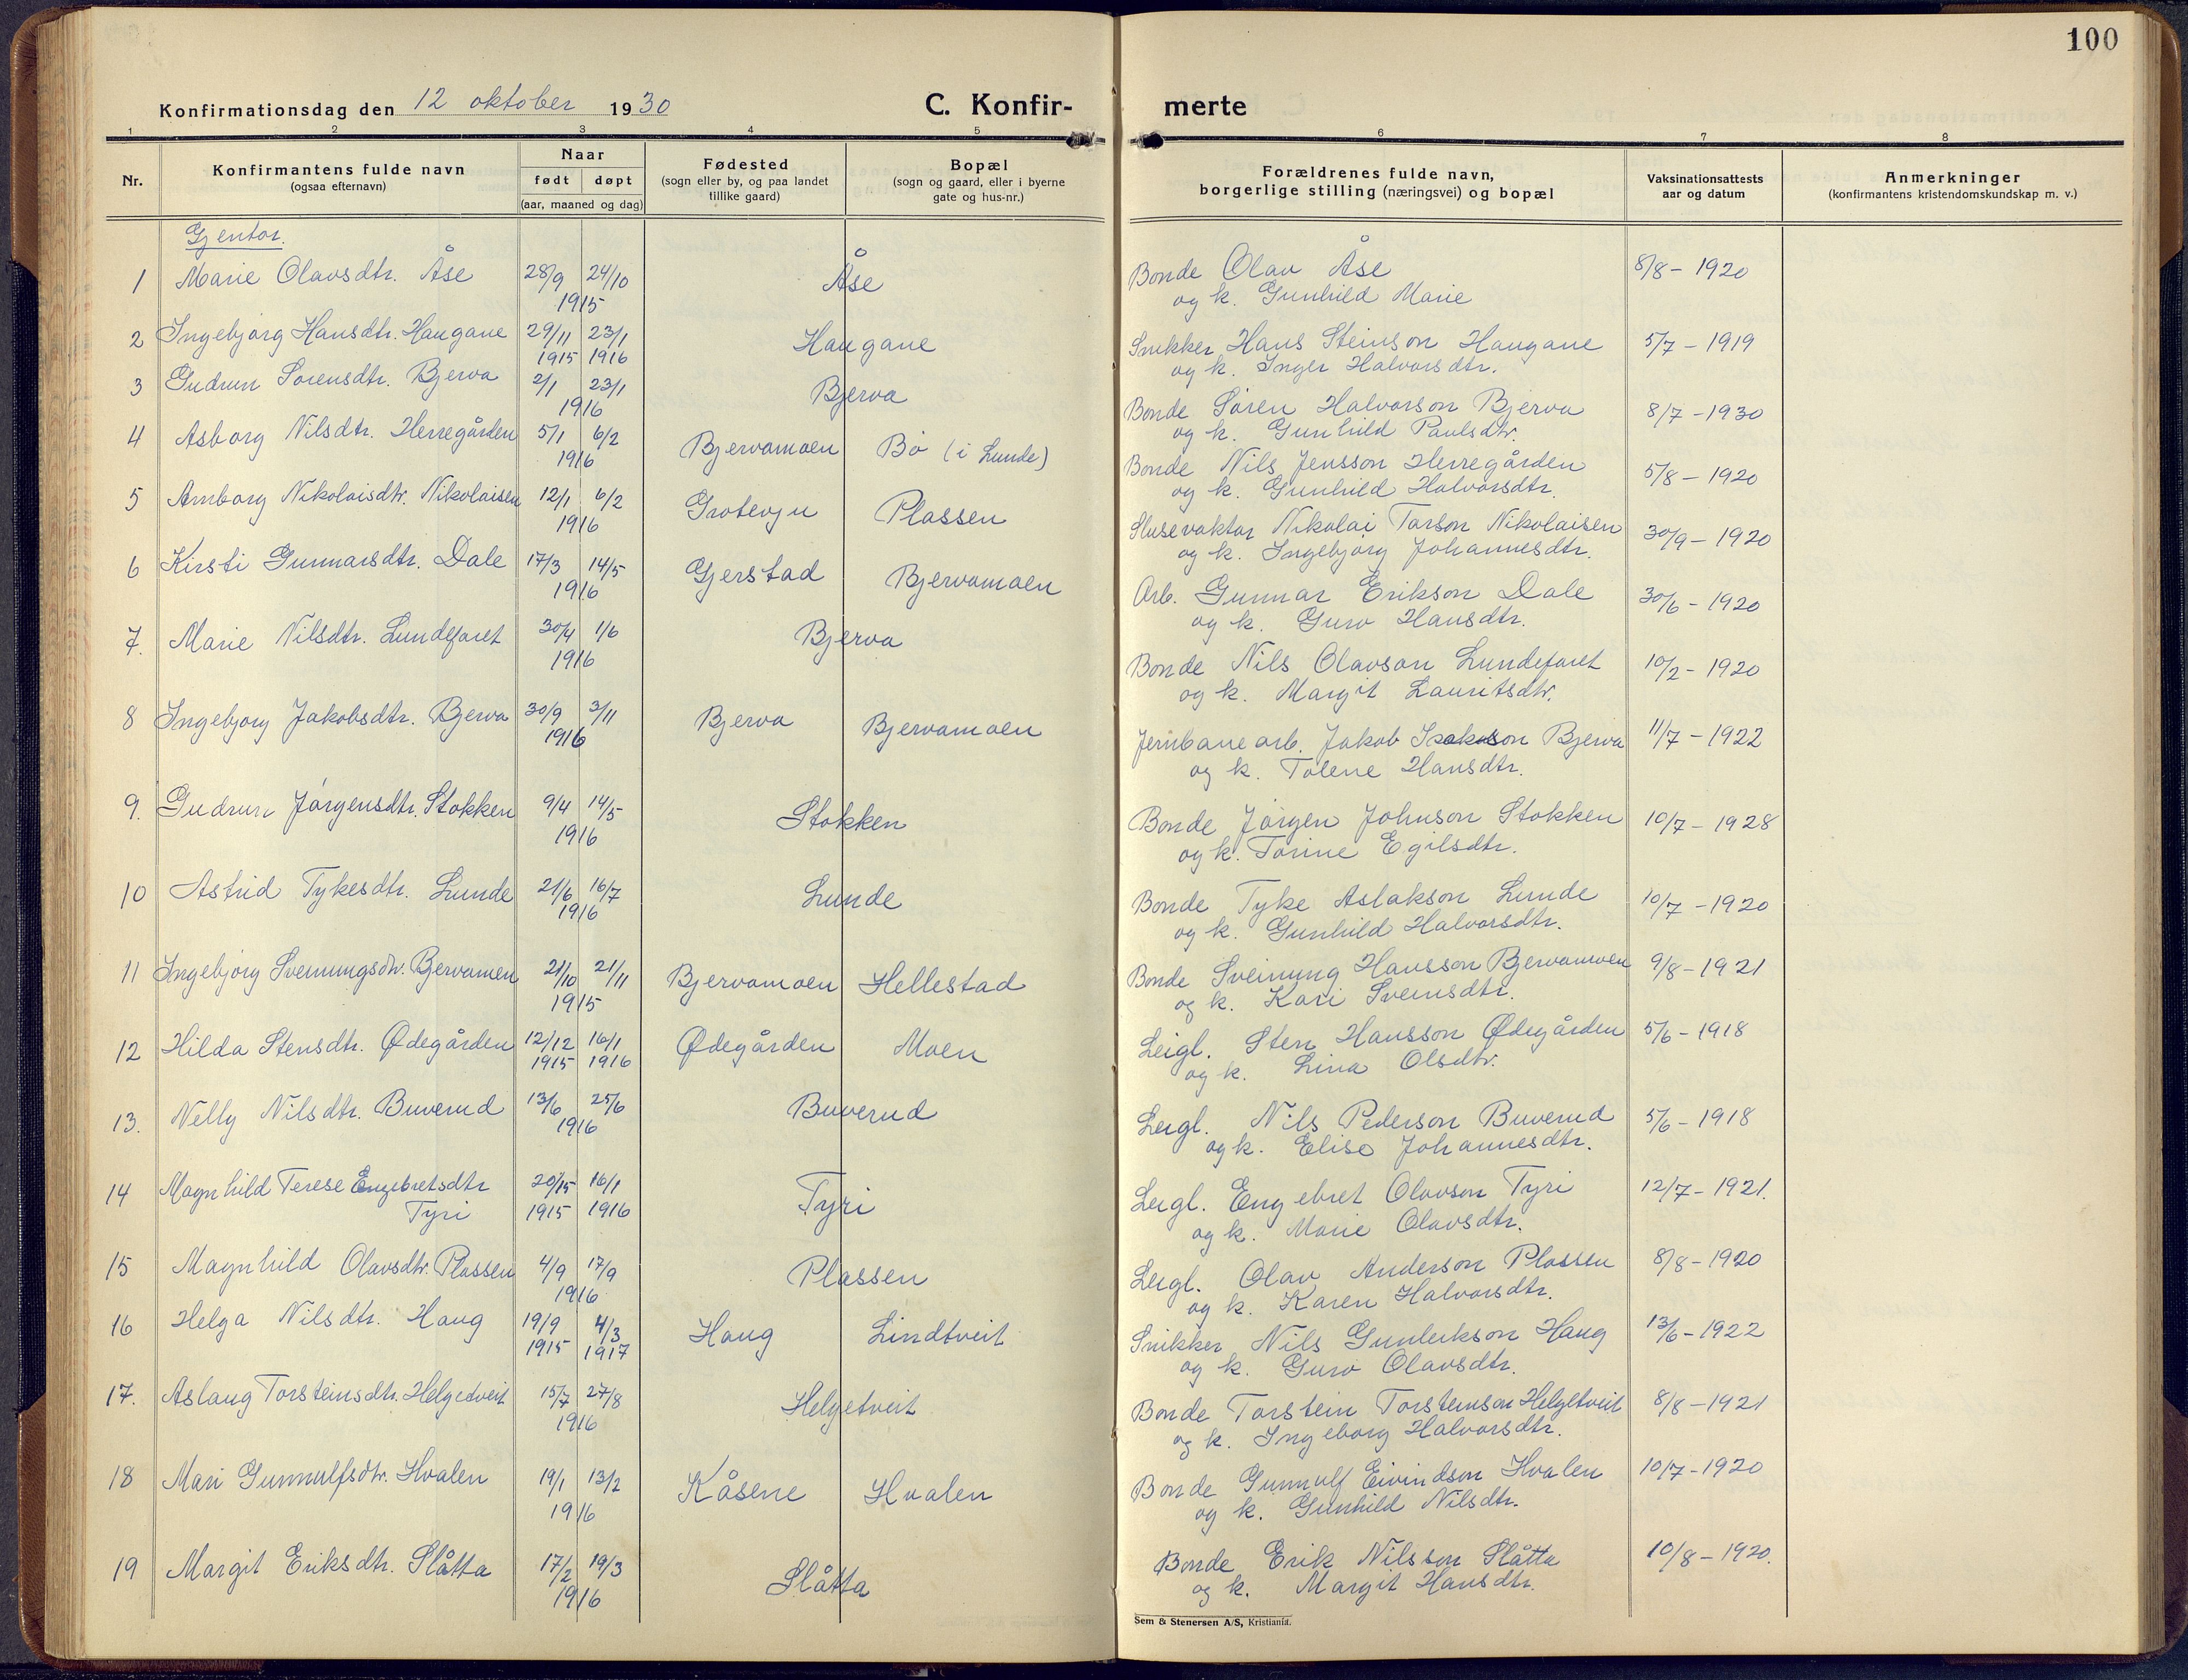 100
Konfirmationsdag den 12 oktober 1930
C. Konfir- merte
1 2 3 4 5 6 7 8
Nr.
Konfirmantens fulde navn
(ogsaa efternavn)
Naar
født døpt
(aar, maaned og dag)
Fødested
(sogn eller by, og paa landet
tillike gaard)
Bopæl
(sogn og gaard, eller i byerne
gate og hus-nr.)
Forældrenes fulde navn,
borgerlige stilling (næringsvei) og bopæl
Vaksinationsattests
aar og datum
Anmerkninger
(konfirmantens kristendomskundskap m. v.)
Gjentor.
1 Marie Olavsdtr. Åse 28/9 24/10 Åse Bonde Olav Åse 8/8 - 1920
1915 og k. Gunhild Marie
2 Ingebjørg Hansdtr. Haugane 29/11 23/1 Haugane Snikker Hans Steinson Haugane 5/7 - 1919
1915 1916 og k. Inger Halvorsdtr.
3 Gudrun Sørensdtr. Bjerva 2/1 23/1 Bjerva Bonde Søren Halvorson Bjerva 8/7 - 1930
1916 og k. Gunhild Paulsdtr.
4 Asborg Nilsdtr. Herregården 5/1 6/2 Bjervamoen Bø (i Lunde) Bonde Nils Jensson Herregården 5/8 - 1920
1916 og k. Gunhild Halvorsdtr.
5 Arnborg Nikolaisdtr. Nikolaisen 12/1 6/2 Grotevju Plassen Slusevaktar Nikolai Tarson Nikolaisen 30/9 - 1920
1916 og k. Ingebjørg Johannesdtr.
6 Kirsti Gunnarsdtr. Dale 17/3 14/5 Gjerstad Bjervamoen Arb. Gunnar Erikson Dale 30/6 - 1920
1916 og k. Guro Hansdtr.
7. Marie Nilsdtr. Lundefaret 30/4 1/6 Bjerva Bonde Nils Olavson Lundefaret 10/2 - 1920
1916 og k. Margit Lauritsdtr.
8 Ingebjørg Jakobsdtr. Bjerva 30/9 3/11 Bjerva Bjervamoen Jernbanearb. Jakob Isakson Bjerva 11/7 - 1922
1916 og k. Tolene Hansdtr.
9. Gudrun Jørgensdtr. Stokken 9/4 14/5 Stokken Bonde Jørgen Johnson Stokken 10/7 - 1928
1916 og k. Torine Egilsdtr.
10 Astrid Tykesdtr. Lunde 21/6 16/7 Lunde Bonde Tyke Aslakson Lunde 10/7 - 1920
1916 og k. Gunhild Halvorsdtr.
11 Ingebjørg Sveinungsdtr. Bjervamoen 21/10 21/11 Bjervamoen Hellestad Bonde Sveinung Hansson Bjervamoen 9/8 - 1921
1915 og k. Kari Sveinsdtr.
12 Hilda Stensdtr. Ødegården 12/12 16/1 Ødegården Moen Leigl. Sten Hansson Ødegården 5/6 - 1918
1915 1916 og k. Lina Olsdtr.
13. Nelly Nilsdtr. Buverud 13/6 25/6 Buverud Leigl. Nils Pederson Buverud 5/6 - 1918
1916 og k. Elise Johannesdtr.
14 Magnhild Terese Engebretsdtr 20/15 16/1 Tyri Leigl. Engebret Olavson Tyri 12/7 - 1921.
Tyri 1915 1916 og k. Marie Olavsdtr.
15 Magnhild Olavsdtr. Plassen 4/9 17/9 Plassen Leigl. Olav Anderson Plassen 8/8 - 1920
1916 og k. Karen Halvorsdtr.
16 Helga Nilsdtr. Haug 19/9 4/3 Haug Lindtveit Snikker Nils Gunleikson Haug 13/6 - 1922
1915 1917 og k. Guro Olavsdtr.
17. Aslaug Torsteinsdtr. Helgetveit 15/7 27/8 Helgetveit Bonde Torstein Torsteinson Helgetveit 8/8 - 1921
1916 og k. Ingeborg Halvorsdtr.
18 Mari Gunnulfsdtr. Hvalen 19/1 13/2 Kåsene Hvalen Bonde Gunnulf Eivindson Hvalen 10/7 - 1920
1916 og k. Gunhild Nilsdtr.
19 Margit Eriksdtr. Slåtta 17/2 19/3 Slåtta Bonde Erik Nilsson Slåtta 10/8 - 1920.
1916 og k. Margit Hansdtr.
Sem & Stenersen A/S, Kristiania.